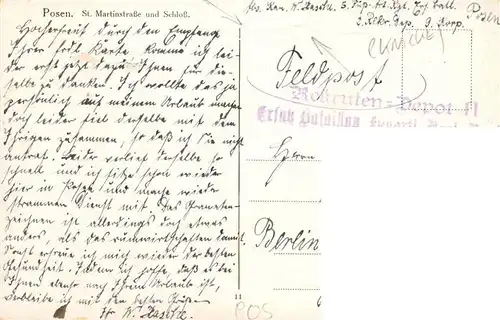 Posen. St. Martinstraße und Schloß.
Hocherfreut durch den Empfang
Ihrer Karte komme ich lei-
der erst jetzt dazu Ihnen für die-
selbe zu danken. Ich wollte das ja
persönlich aus meinem Urlaub
doch leider fiel derselbe mit dem
Ihrigen zusammen, so daß ich Sie nicht
antraf. Leider verlief derselbe so
schnell und ich sitze schon wieder
hier in Posen und mache wieder
strammen Dienst mit. Das Granaten-
zeichnen ist allerdings doch etwas
anders, als das rumwirtschaften damit.
Sonst erfreue ich mich wieder der besten
Gesundheit. Indem ich hoffe, daß es bei
Ihnen ebenso nach Ihrem Urlaub ist,
verbleibe ich mit den besten Grüßen
Ihr W.
Abs. Kan. W. 5.
2. Rekr. Dep. 9. Korp.
Posen
Feldpost
Rekruten-Depot II
Ersatz Bataillon
Herrn
Berlin
11
POS